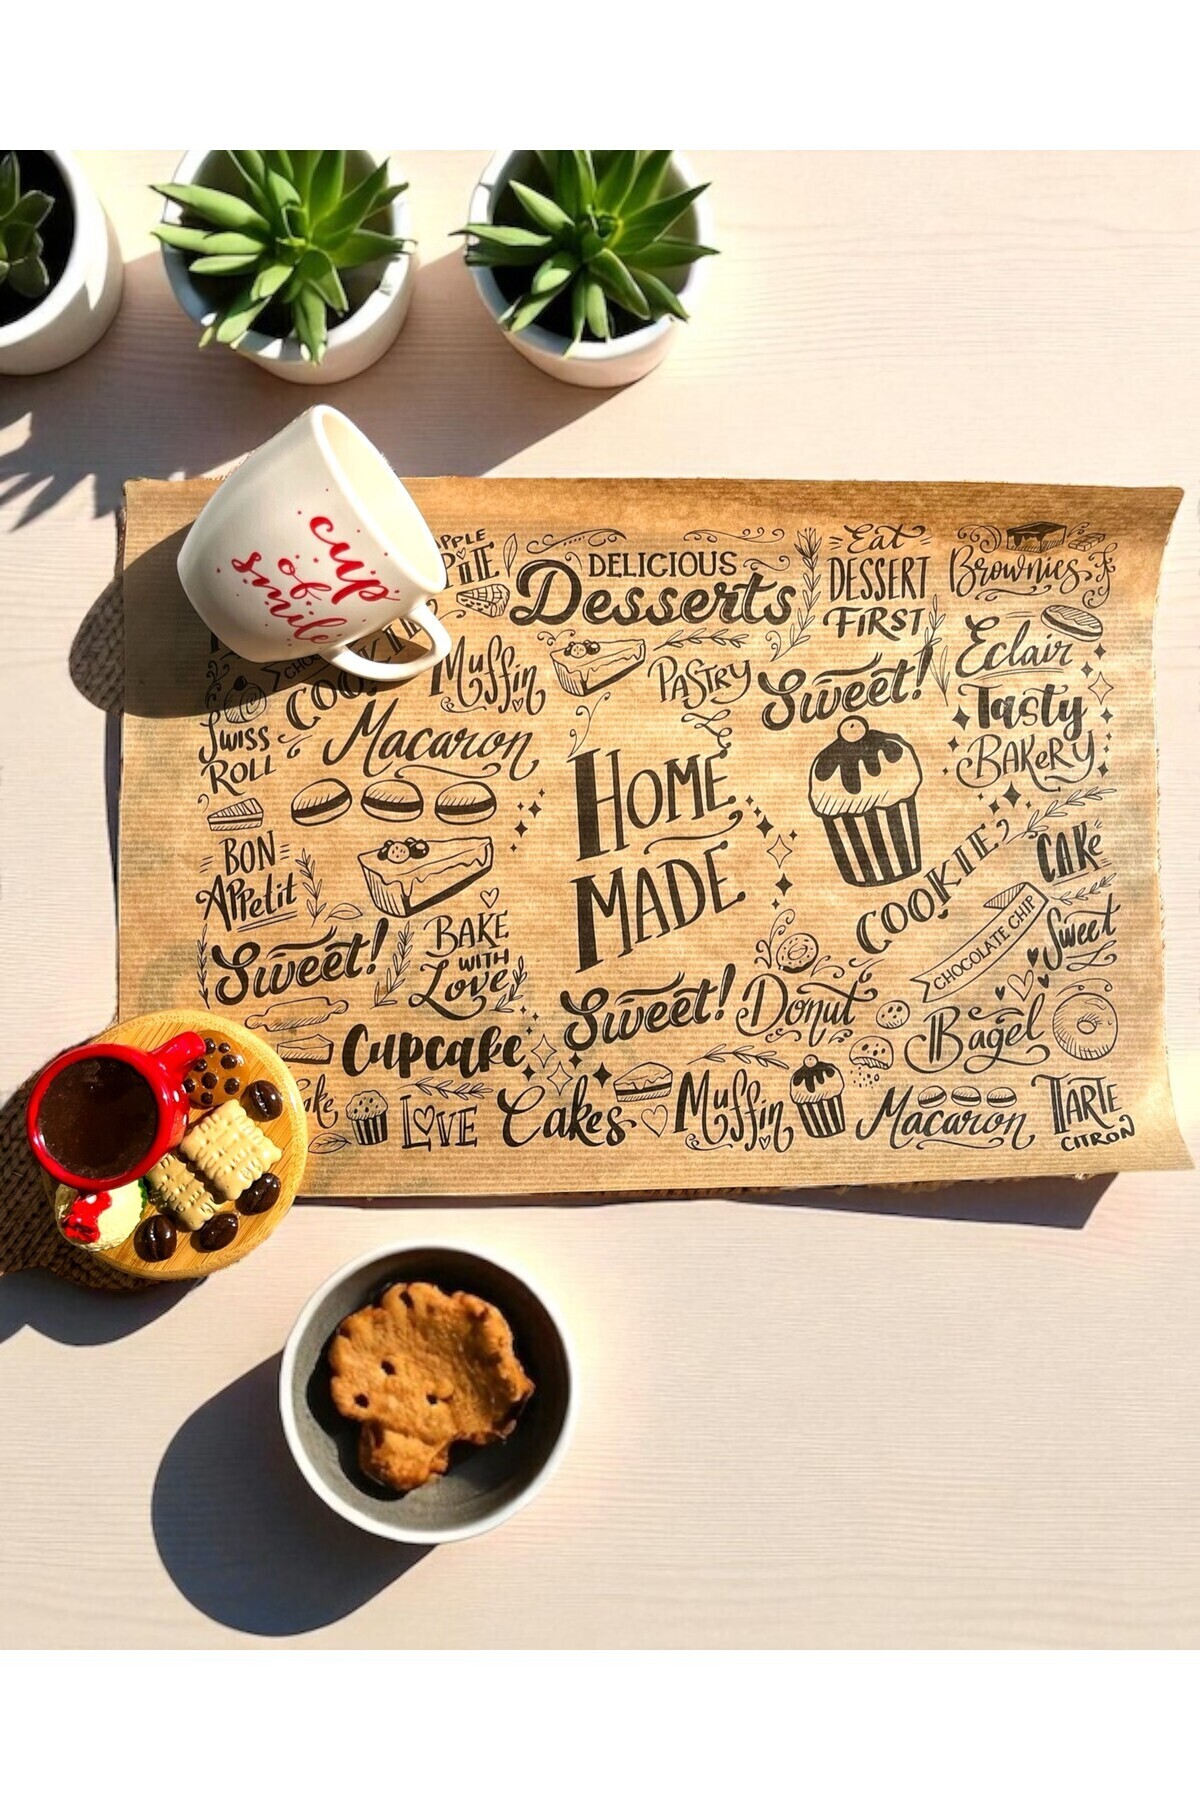 cup
of
smile
PIE
DELICIOUS
Desserts
Eat
DESSERT
FIRST
Brownies
Muffin
PASTRY
Sweet!
Eclair
Tasty
BAKERY
SWISS
ROLL
Macaron
HOME
MADE
COOKIE
CHOCOLATE CHIP
CAKE
Sweet
BON
APPetit
BAKE
WITH
Love
Sweet!
Sweet!
Donut
Bagel
Cupcake
LOVE
Cakes
Muffin
Macaron
TARTE
CITRON